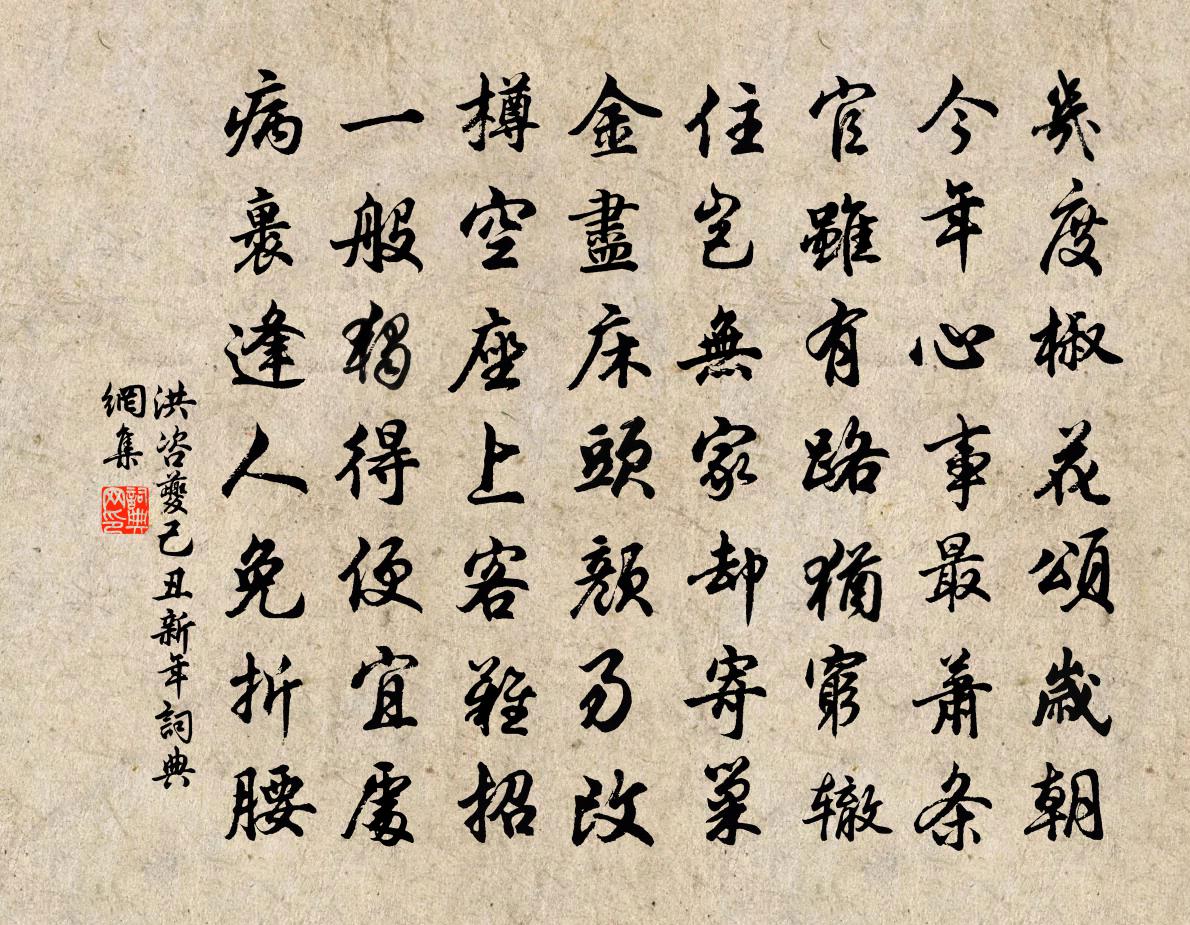 幾度椒花頌歲朝
今年心事最蕭条
官雖有路猶窮轍
住豈無家却寄巢
金盡床頭顏易改
樽空座上客難招
一般獨得便宜處
病裏逢人免折腰
洪咨夔己丑新年詞典
網集
詞典網印